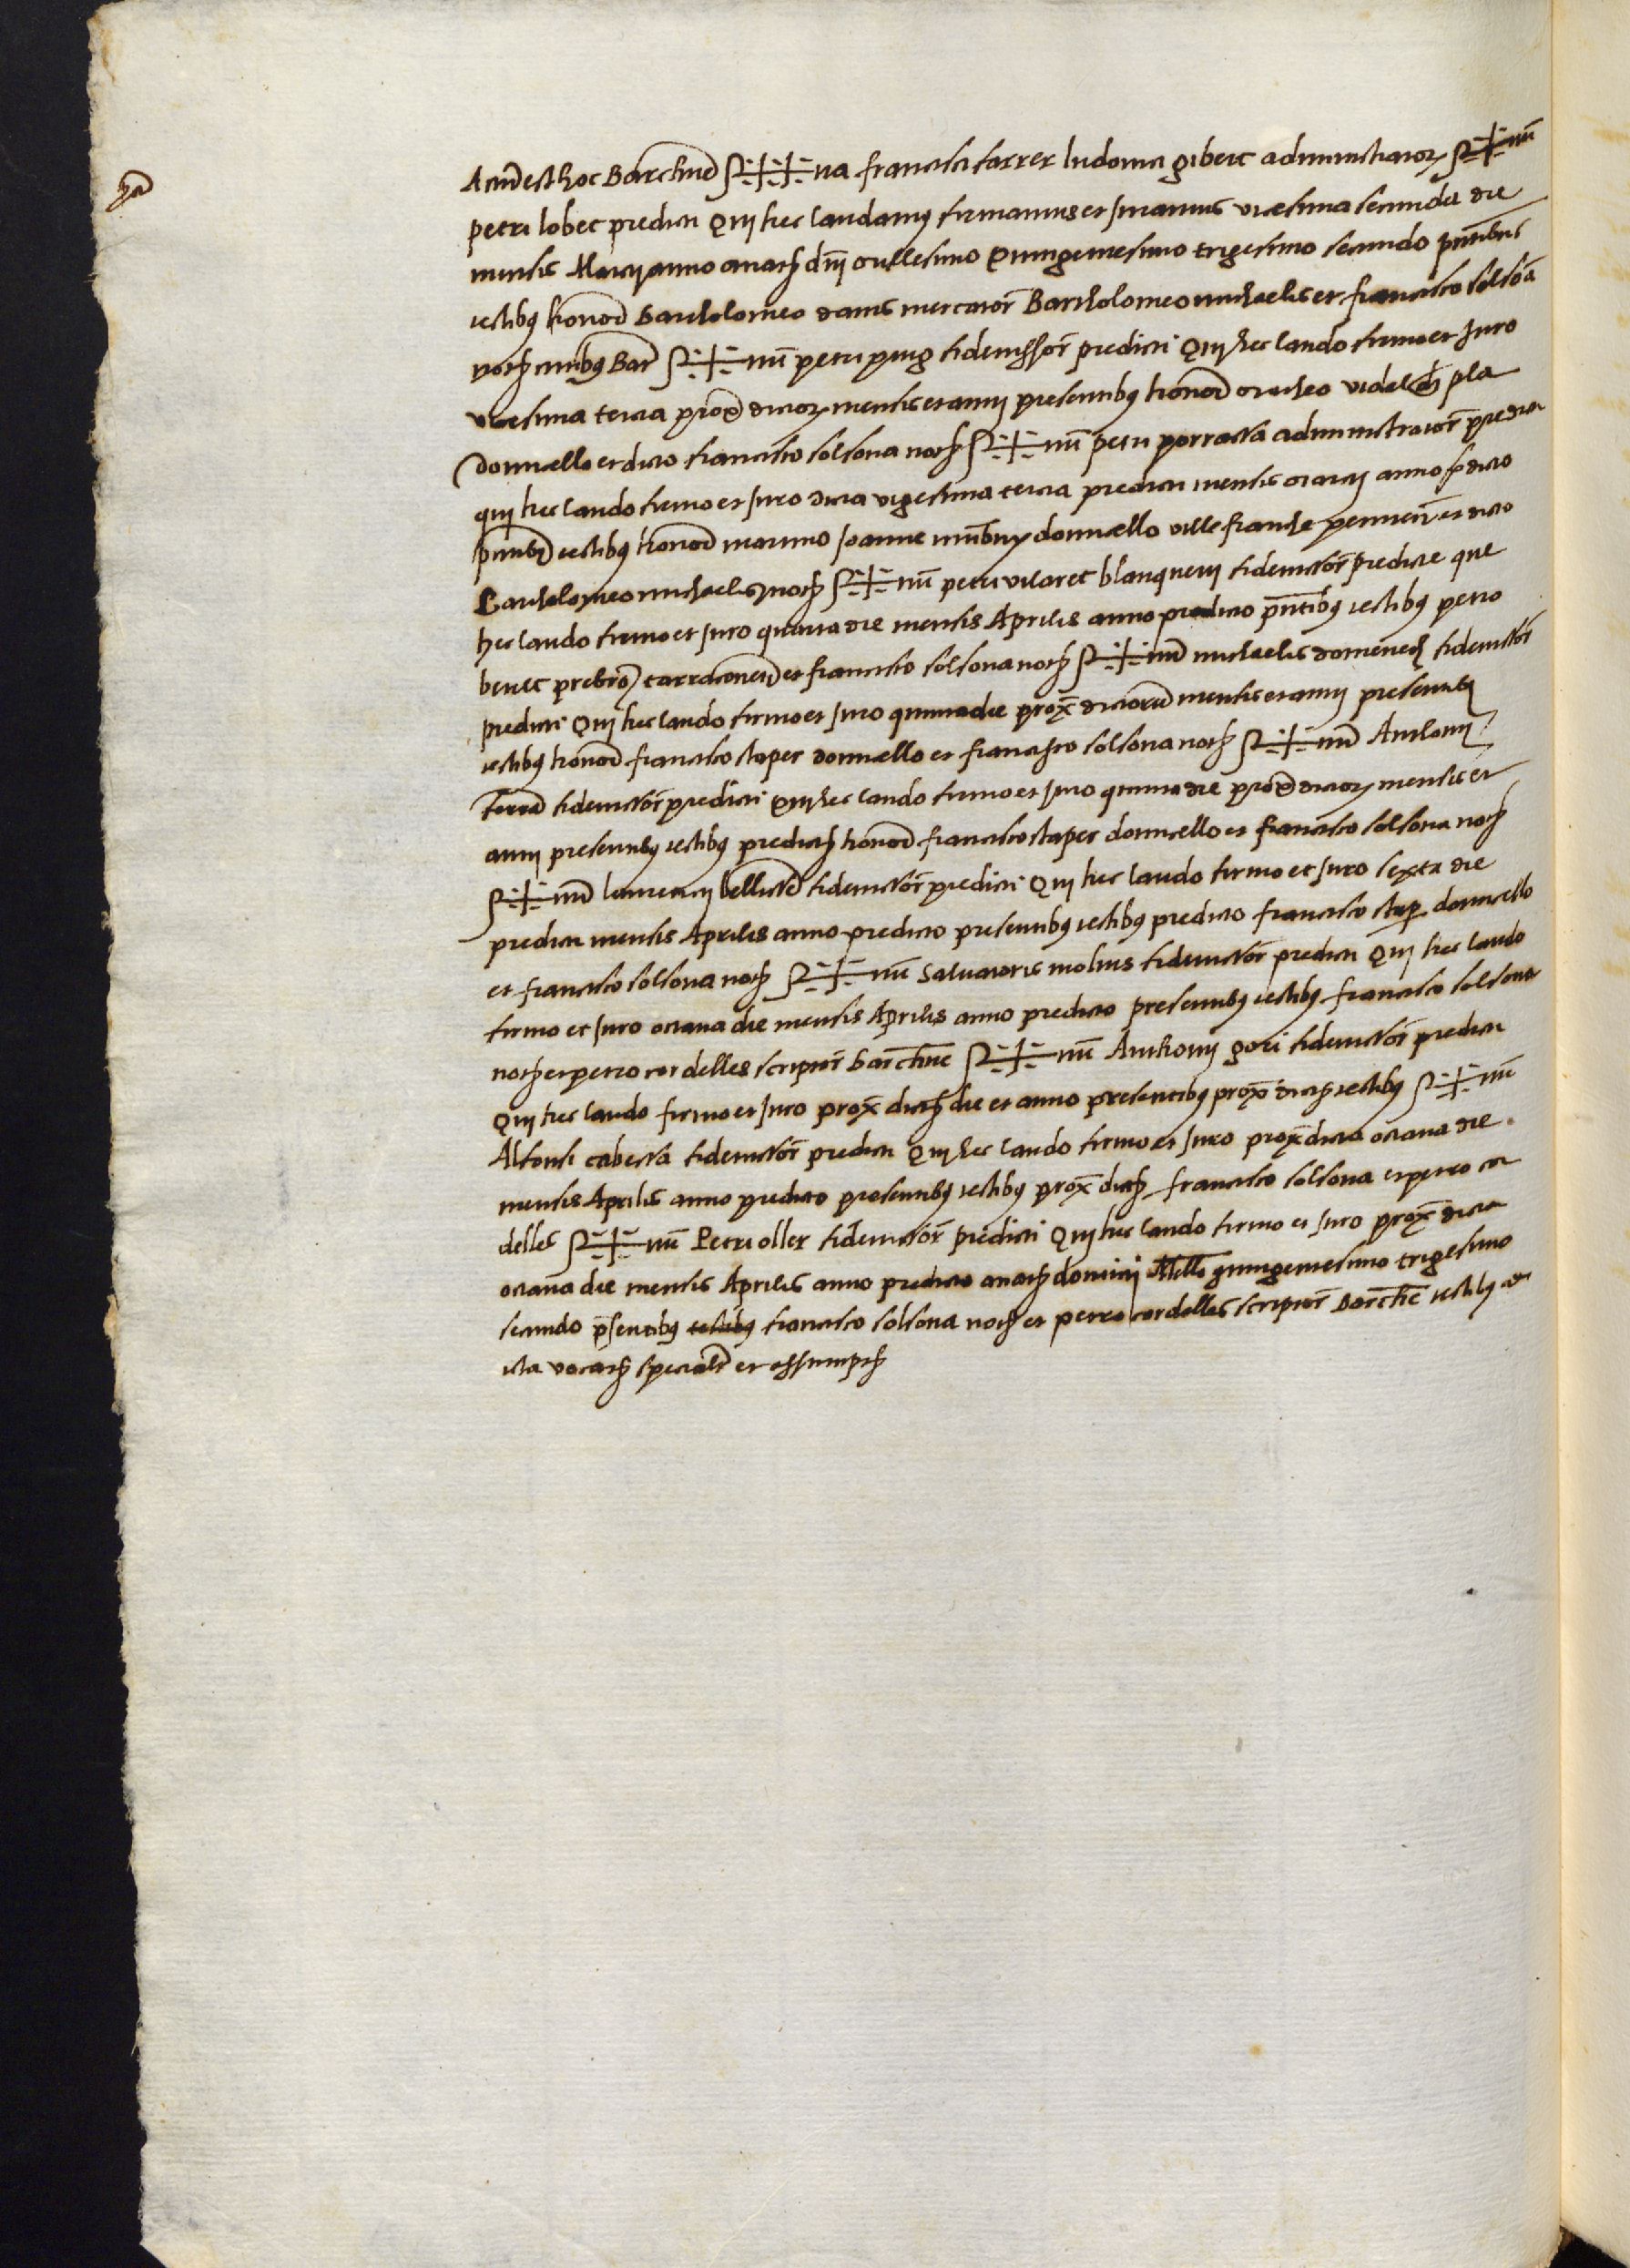 Actum est hoc Barchinone S++na francisci ferrer ludovici gibert administratorum S+num
petri lobet predicti Qui hec laudamus firmamus et juramus vicesima secunda die
mensis Marcii anno a natte dni millesimo Quingentesimo trigesimo secundo pntibus
testibus honor Bartholomeo mercator Bartholomeo michaelis et francisco solsona
nots civibus Bar S+num petri puig fideiussor predicti Qui hec laudo firmo et juro
vicesima tercia prox dictor mensis et anni presentibus honor matheo pla
donicello et dicto francisco solsona nots S+num petri administrator predicti
qui hec laudo firmo et juro dicta vigesima tercia predicti mensis marcii anno predicto
pntibus testibus honor Joanne donicello ville franche et dicto
Bartholomeo michaelis nots S+num petri vilaret blanquerii fideiussor predicte que
hec laudo firmo et juro quarta die mensis Aprilis anno predicto pntibus testibus petro
benet prebro et francisco solsona nots S+num michaelis domenech fideiussor
predicti Qui hec laudo firmo et juro quinta die prox dictorum mensis et anni presentibus
testibus honor francisco staper donicello et francisco solsona nots S+num Anthonii
ferran fideiussor predicti Qui hec laudo firmo et juro quinta die prox dictor mensis et
anni presentibus testibus predictis honor francisco staper donicello et francisco solsona nots
S+num laurencii fideiussor predicti Qui hec laudo firmo et juro sexta die
predicti mensis Aprilis anno predicto presentibus testibus predicto francisco stap donicello
et francisco solsona nots S+num Salvatoris molins fideiussor predicti Qui hec laudo
firmo et juro octava die mensis Aprilis anno predicto presentibus testibus francisco solsona
nots et petro cordelles scriptor barchine S+num Anthonii gori fideiussor predicti
Qui hec laudo firmo et juro prox dictis die et anno presentibus prox dictis testibus S+num
Alfonsi fideiussor predicti Qui hec laudo firmo et juro prox dicta octava die
mensis Aprilis anno predicto presentibus testibus prox dictis francisco solsona et petro cor
delles S+num Petri oller fideiussor predicti Qui hec laudo firmo et juro prox dicta
octava die mensis Aprilis anno predicto a natte domini Millo quingentesimo trigesimo
secundo presentibus testibus francisco solsona nots et petro cordelles scriptor barchine testibus ad
ista vocatis specialr et assumptis